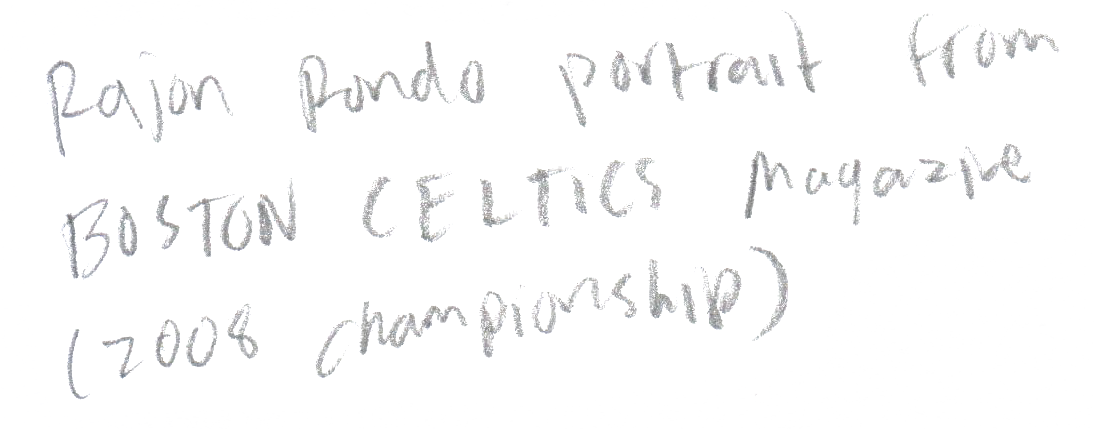 Rajon Rondo portrait from
BOSTON CELTICS Magazine
(2008 championship)